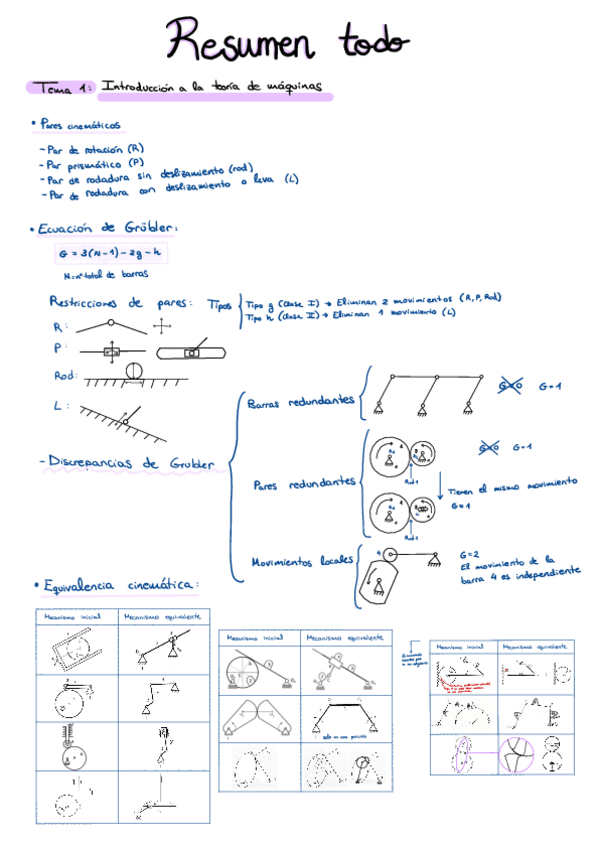 Resumen todo
Tema 1: Introducción a la teoría de máquinas
• Pares cinemáticos
- Par de rotación (R)
- Par prismático (P)
- Par de rodadura sin deslizamiento (rod)
- Par de rodadura con deslizamiento o leva (L)
• Ecuación de Grübler:
G = 3(N-1) - 2g - h
N = nº total de barras
Restricciones de pares: Tipos
Tipo g (clase I) → Eliminan 2 movimientos (R, P, Rod)
Tipo h (clase II) → Eliminan 1 movimiento (L)
R:
P:
Rod:
L:
- Discrepancias de Grubler
Barras redundantes
G=0 G=1
Pares redundantes
G=0 G=1
Rod 1
Tienen el mismo movimiento
G=1
Rod 1
Movimientos locales
4
G=2
El movimiento de la
barra 4 es independiente
• Equivalencia cinemática:
Mecanismo inicial Mecanismo equivalente
Mecanismo inicial Mecanismo equivalente
solo en una posición
Mecanismo inicial Mecanismo equivalente